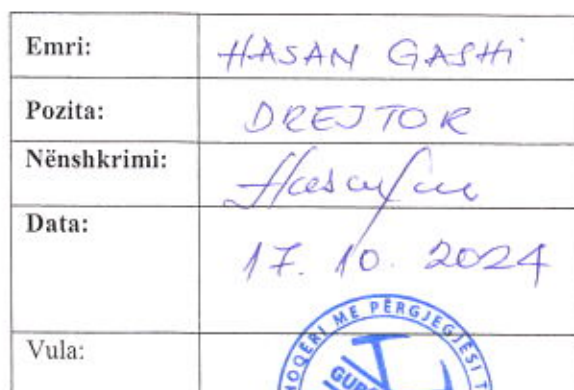 Emri: HASAN GASHi
Pozita: DREJTOR
Nënshkrimi:
Data: 17. 10. 2024
Vula:
ME PËRGJEGJËSI